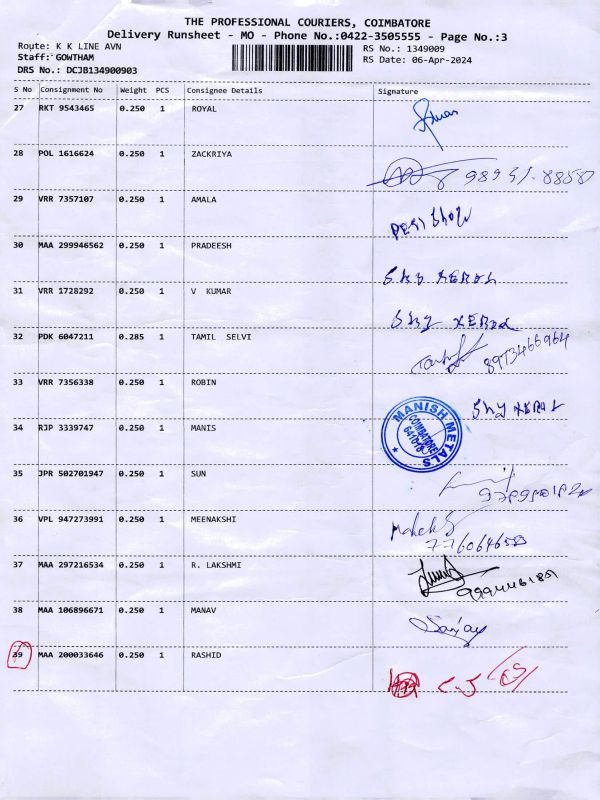 THE PROFESSIONAL COURIERS, COIMBATORE
Delivery Runsheet - MO - Phone No.:0422-3505555 - Page No.:3
Route: K K LINE AVN
RS No.: 1349009
Staff: GOWTHAM
RS Date: 06-Apr-2024
DRS No.: DCJB134900903
S No Consignment No Weight PCS Consignee Details Signature
27 RKT 9543465 0.250 1 ROYAL
28 POL 1616624 0.250 1 ZACKRIYA
29 VRR 7357107 0.250 1 AMALA
30 MAA 299946562 0.250 1 PRADEESH
31 VRR 1728292 0.250 1 V KUMAR
32 PDK 6047211 0.285 1 TAMIL SELVI
8973466964
33 VRR 7356338 0.250 1 ROBIN
34 RJP 3339747 0.250 1 MANIS
MANISH METALS
COIMBATORE
35 JPR 502701947 0.250 1 SUN
36 VPL 947273991 0.250 1 MEENAKSHI
37 MAA 297216534 0.250 1 R. LAKSHMI
38 MAA 106896671 0.250 1 MANAV
Sanjay
39 MAA 200033646 0.250 1 RASHID